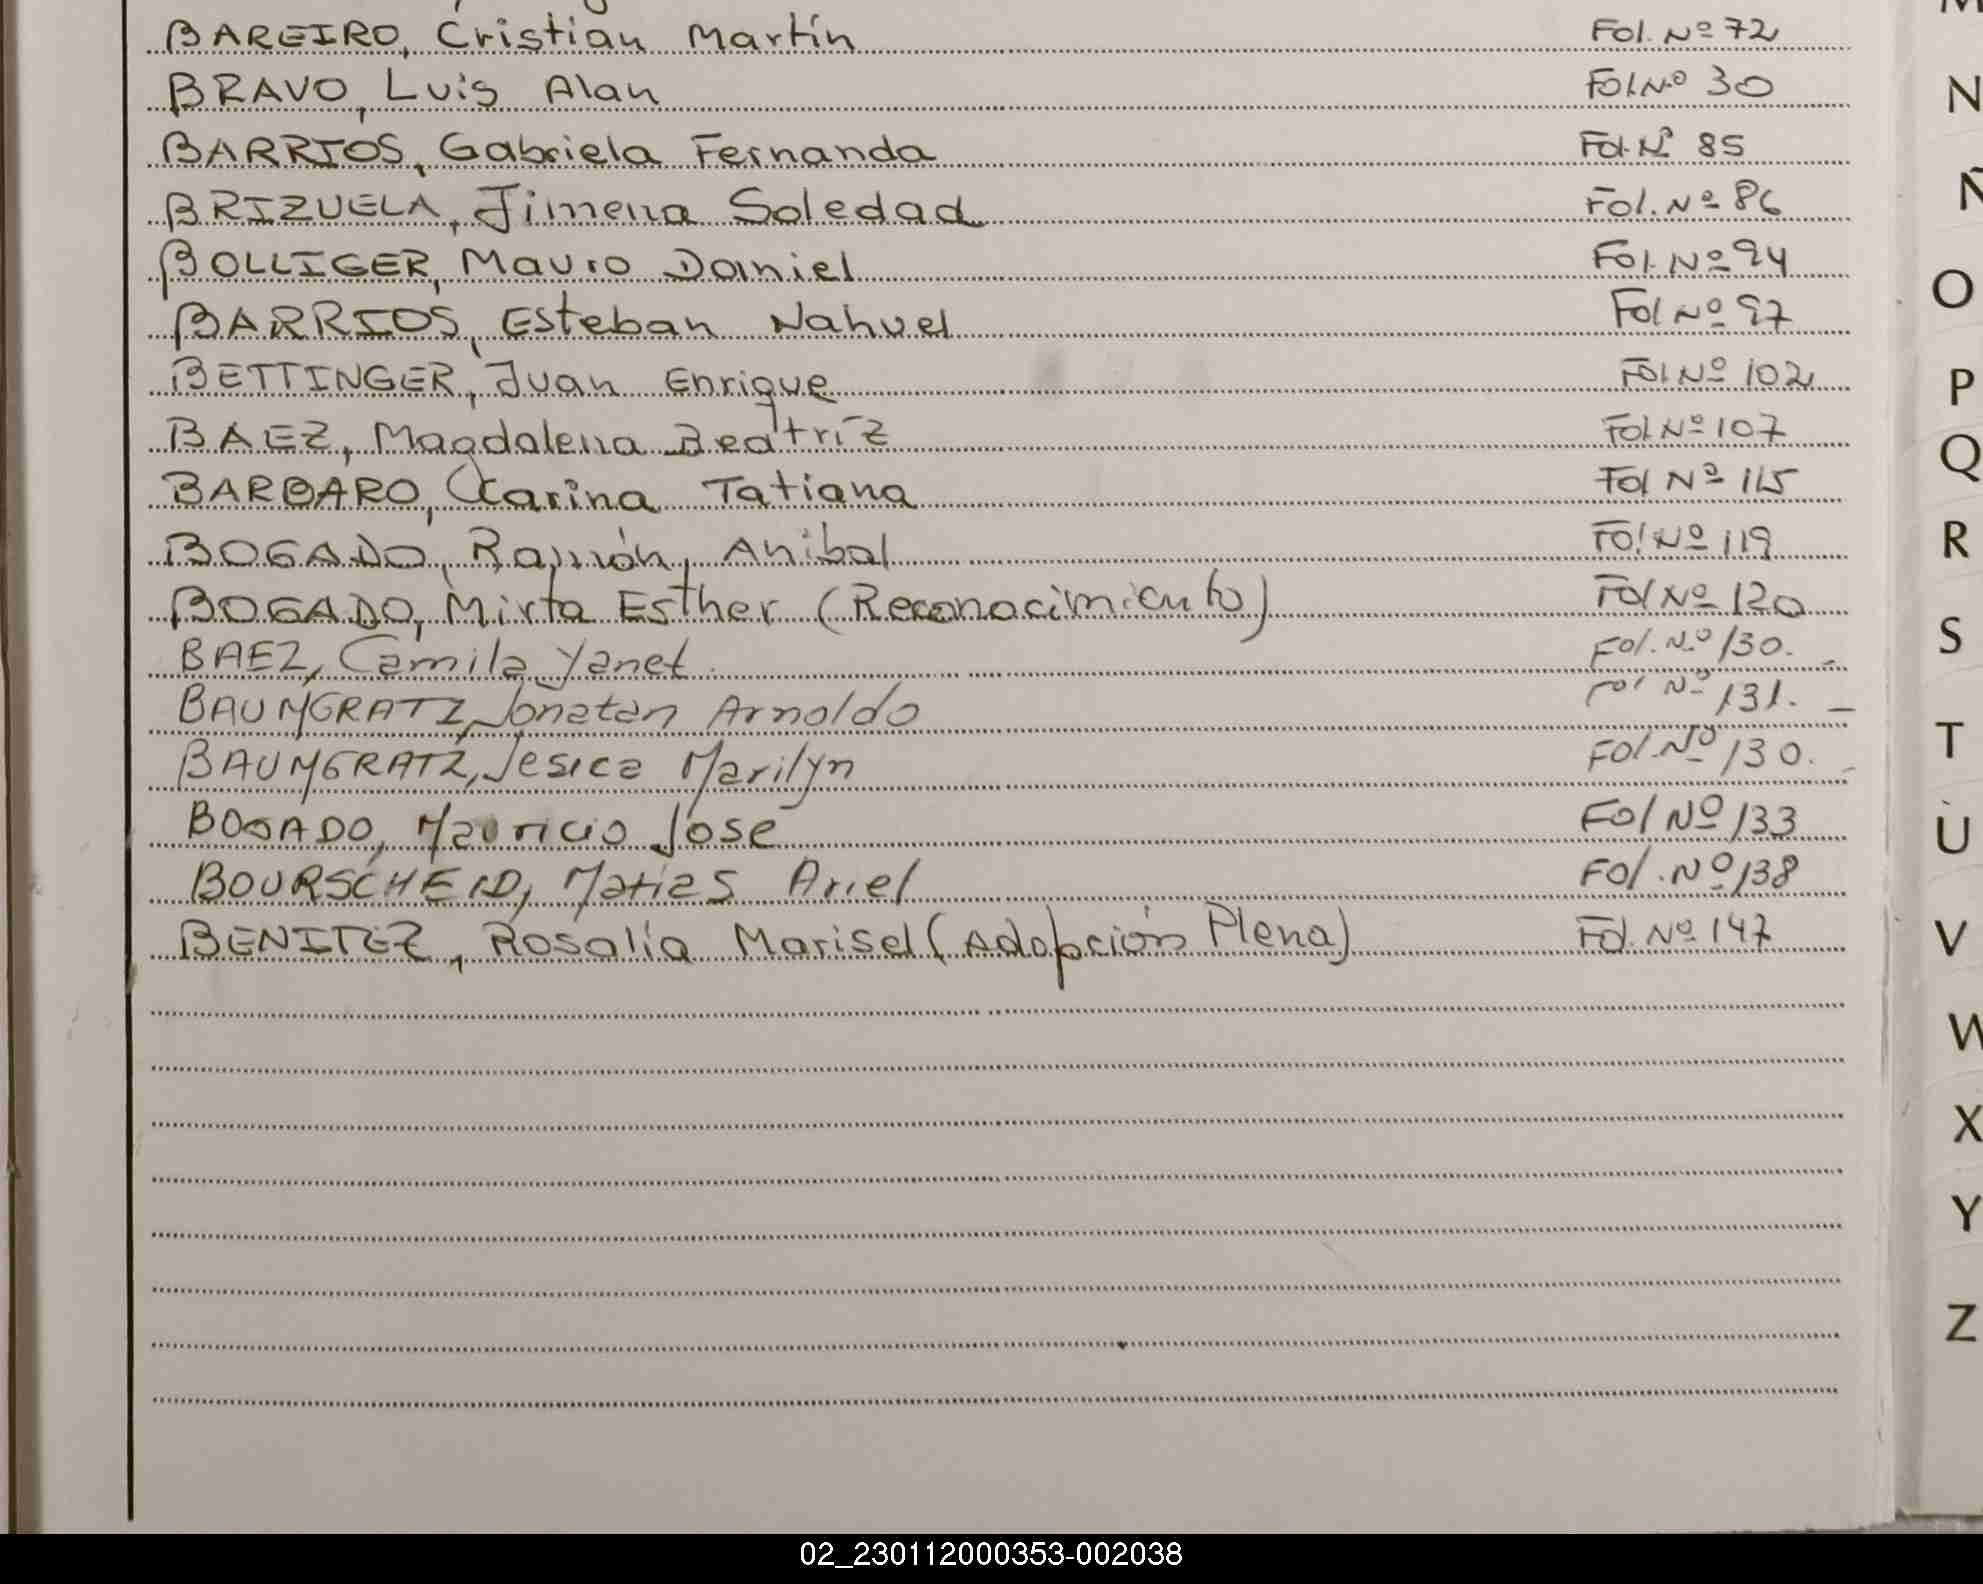 BAREIRO, Cristian Martín Fol. Nº 72
BRAVO, Luis Alan Fol Nº 30
BARRIOS, Gabriela Fernanda Fol. Nº 85
BRIZUELA, Jimena Soledad Fol. Nº 86
BOLLIGER, Mauro Daniel Fol. Nº 94
BARRIOS, Esteban Nahuel Fol Nº 97
BETTINGER, Juan Enrique Fol Nº 102
BAEZ, Magdalena Beatríz Fol Nº 107
BARBARO, Karina Tatiana Fol Nº 115
BOGADO, Ramón, Anibal Fol Nº 119
BOGADO, Mirta Esther (Reconocimiento) Fol Nº 120
BAEZ, Camila Yanet. Fol. Nº 130.
BAUMGRATZ, Jonatan Arnoldo Fol Nº 131.
BAUMGRATZ, Jesica Marilyn Fol. Nº 130.
BOGADO, Mauricio Jose Fol Nº 133
BOURSCHEID, Matias Ariel Fol. Nº 138
BENITEZ, Rosalía Marisel (Adopción Plena) Fol. Nº 147
N
Ñ
O
P
Q
R
S
T
U
V
W
X
Y
Z
02_230112000353-002038